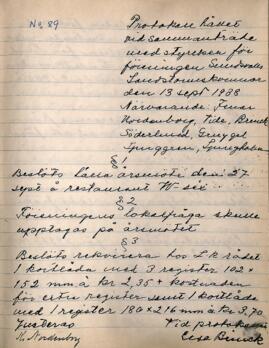 No 89
Protokoll hållet
vid sammanträde
med styrelsen för
föreningen Sundsvalls
Landstormskvinnor
den 13 sept 1938
Närvarande: Fruar
Nordenborg, Tide, Bruck
Söderlund, Gengzel
Ljunggren, Ljungholm
§ 1
Beslöts hålla årsmöte den 27
sept å restaurant W
§ 2
Föreningens lokalfråga skulle
upptagas på årsmötet
§ 3
Beslöts rekvirera hos Lk rådet
1 kortlåda med 3 register 102 ×
152 mm à kr 2,35 + kostnaden
för extra register samt 1 kortlåda
med 1 register 180 × 216 mm à kr 3,70
Justeras Vid protokollet
M. Nordenborg Elsa Bruck